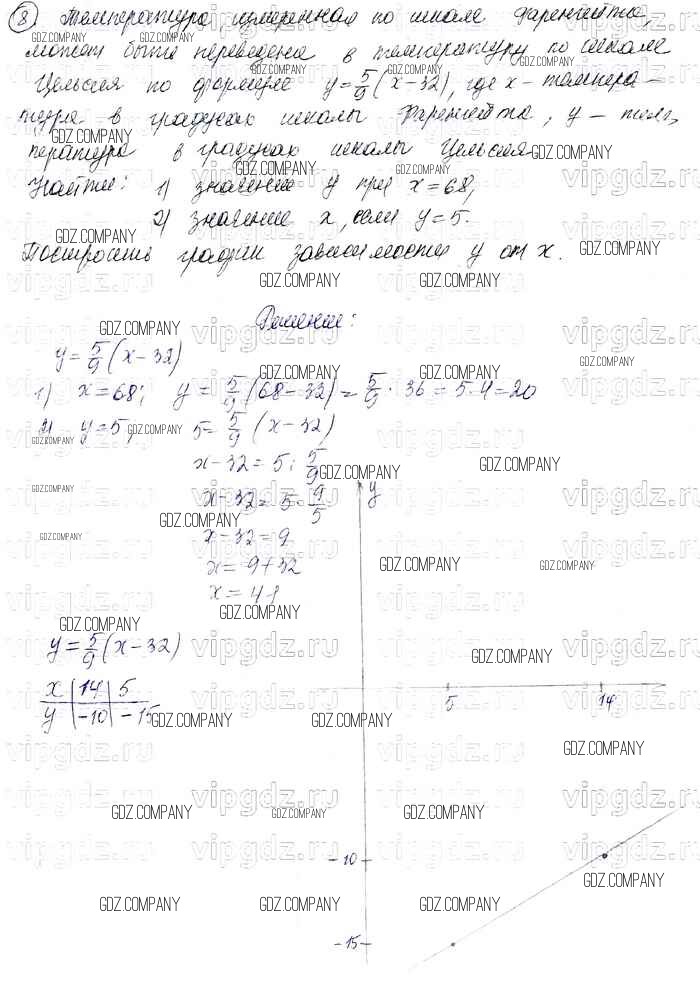 8) Температура, измеренная по шкале Фаренгейта,
может быть переведена в температуру по шкале
Цельсия по формуле y = 5/9 (x - 32), где x - темпера-
тура в градусах шкалы Фаренгейта, y - тем-
пература в градусах шкалы Цельсия.
Найти: 1) значение y при x = 68;
2) значение x, если y = 5.
Построить график зависимости y от x.
Решение:
y = 5/9 (x - 32)
1) x = 68; y = 5/9 (68 - 32) = 5/9 · 36 = 5 · 4 = 20
2) y = 5; 5 = 5/9 (x - 32)
x - 32 = 5 : 5/9
x - 32 = 5 · 9/5
x - 32 = 9
x = 9 + 32
x = 41
y = 5/9 (x - 32)
x | 14 | 5
y | -10 | -15
y
5 14
-10
-15
GDZ.COMPANY
vipgdz.ru